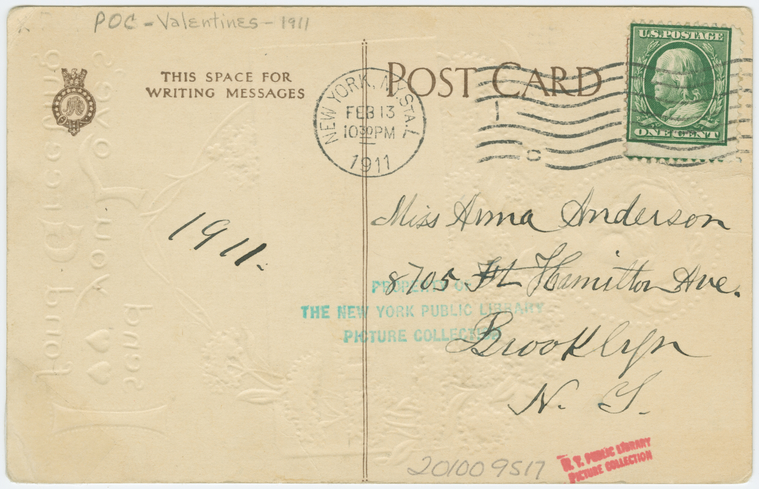 POC - Valentines - 1911
THIS SPACE FOR
WRITING MESSAGES
POST CARD
NEW YORK, N.Y. STA. L
FEB 13
10 30 PM
1911
U.S. POSTAGE
ONE CENT
1911.
Miss Anna Anderson
8705 Ft. Hamilton Ave.
Brooklyn
N. Y.
PROPERTY OF
THE NEW YORK PUBLIC LIBRARY
PICTURE COLLECTION
201009517
N. Y. PUBLIC LIBRARY
PICTURE COLLECTION